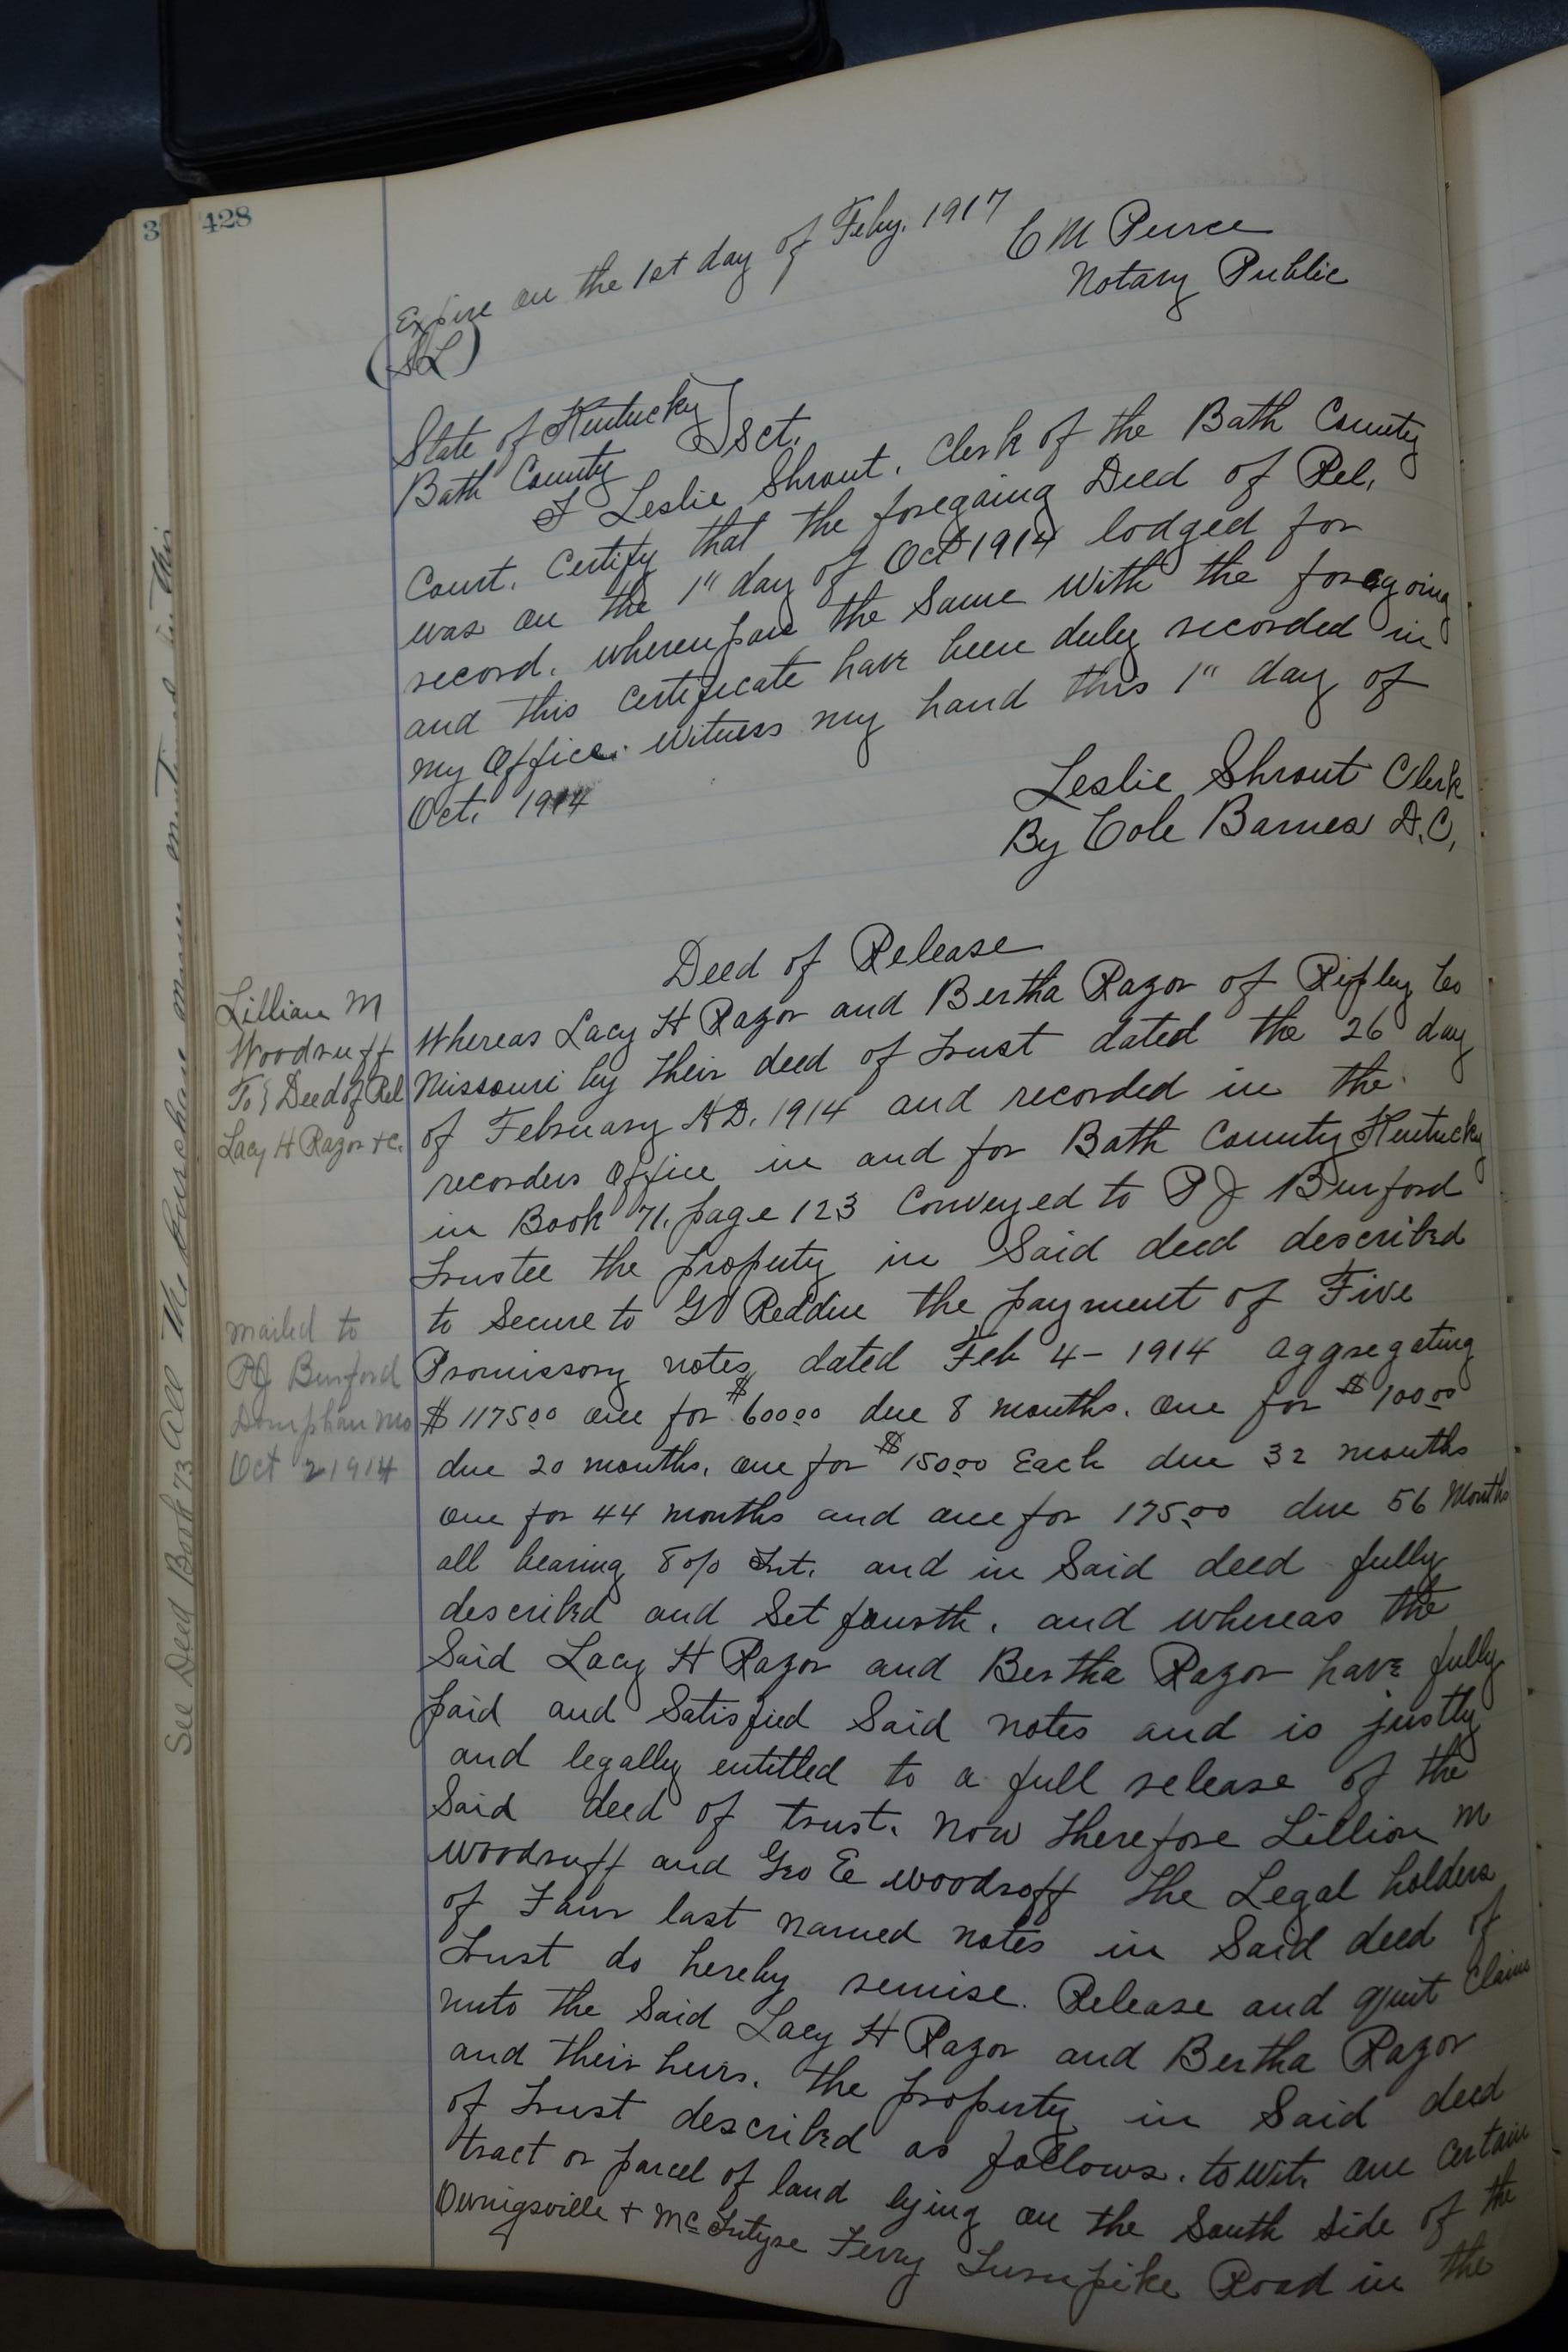 3
428
Expire on the 1st day of Feby. 1917
C M Peirce
Notary Public
(SL)
State of Kentucky
Bath County } Sct.
I Leslie Shrout. Clerk of the Bath County
Court. Certify that the foregoing Deed of Rel.
was on the 1" day of Oct 1914 lodged for
record. whereupon the Same With the foregoing
and this certificate have been duly recorded in
my Office. Witness my hand this 1" day of
Oct. 1914
Leslie Shrout Clerk
By Cole Barnes D.C.
Deed of Release
Lillian M
Woodruff
To } Deed of Rel
Lacy H Razor &c.
Whereas Lacy H Razor and Bertha Razor of Ripley Co
Missouri by their deed of trust dated the 26 day
of February A.D. 1914 and recorded in the
recorders Office in and for Bath County Kentucky
in Book 71. page 123 Conveyed to P J Burford
trustee the property in Said deed described
to Secure to G Reddin the payment of Five
Promissory notes dated Feb 4 - 1914 aggregating
$1175.00 one for $600.00 due 8 months. One for $100.00
due 20 months. one for $150.00 Each due 32 months
one for 44 months and one for 175.00 due 56 Months
all bearing 8 o/o Int. and in Said deed fully
described and Set fourth. and whereas the
Said Lacy H Razor and Bertha Razor have fully
paid and Satisfied Said notes and is justly
and legally entitled to a full release of the
Said deed of trust. Now therefore Lillian M
Woodruff and Geo E Woodroff the Legal holders
of Four last named notes in Said deed of
trust do hereby remise. Release and quit Claim
unto the Said Lacy H Razor and Bertha Razor
and their heirs. the property in Said deed
of trust described as follows. towit. one Certain
tract or parcel of land lying on the South Side of the
Owingsville & McIntyre Ferry Turnpike Road in the
mailed to
PJ Burford
Doniphan Mo
Oct 2 1914
See Deed Book 73 All the purchase money mentioned in this